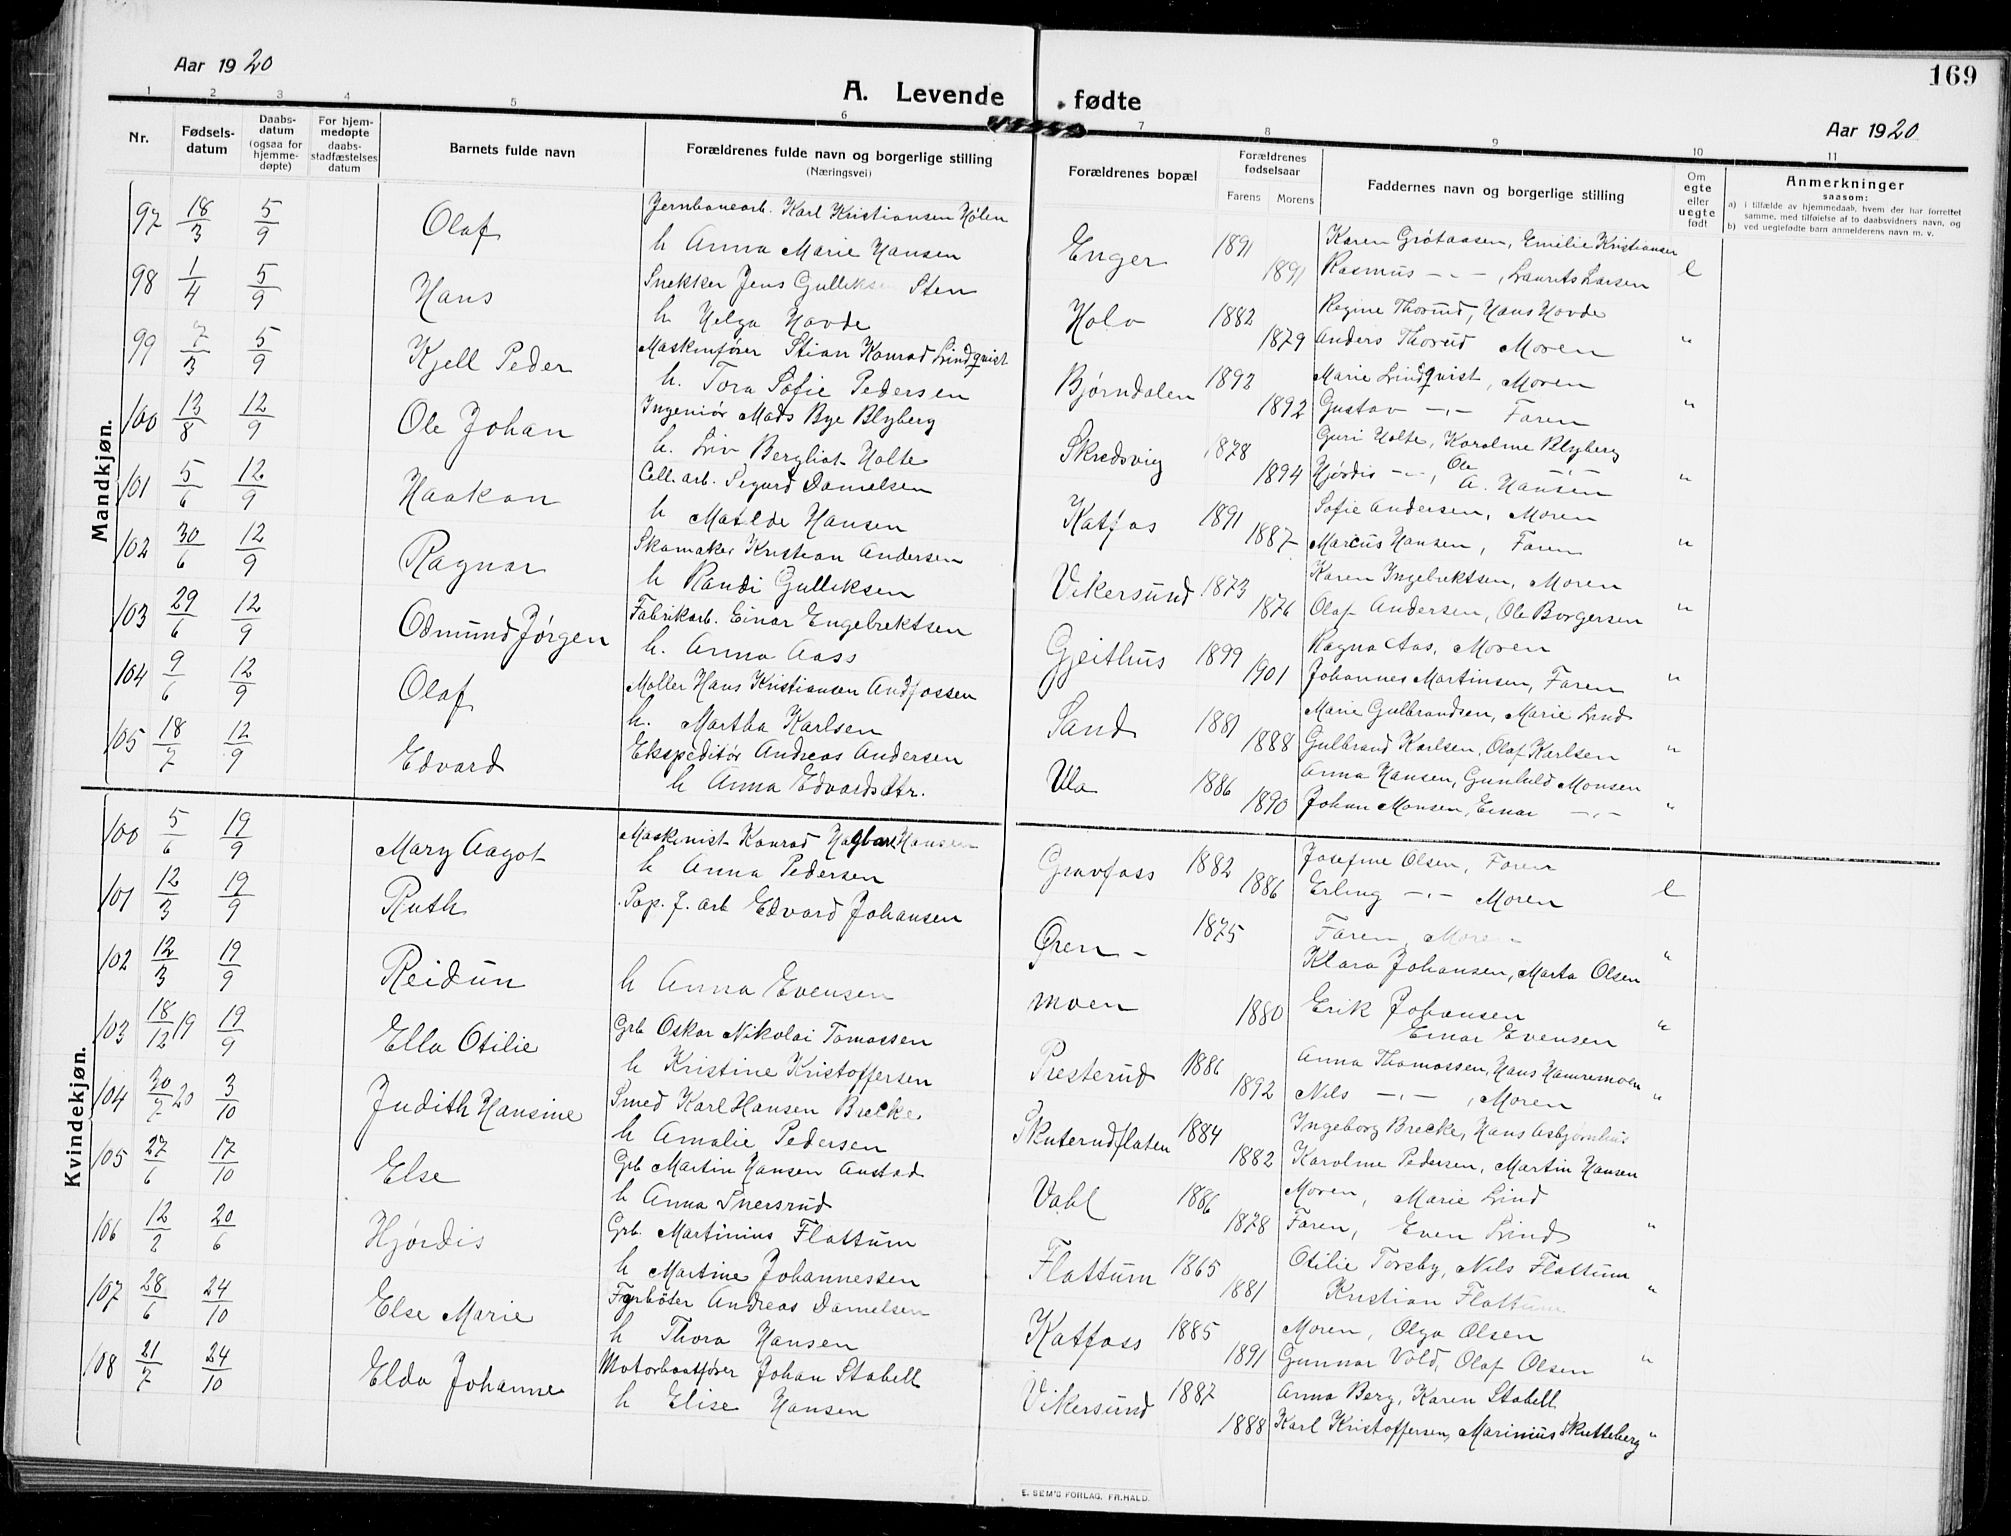 169
Aar 1920
A. Levende fødte
Aar 1920
1 2 3 4 5 6 7 8 9 10 11
Nr.
Fødsels-
datum
Daabs-
datum
(ogsaa for
hjemme-
døpte)
For hjem-
medøpte
daabs-
stadfæstelses
datum
Barnets fulde navn
Forældrenes fulde navn og borgerlige stilling
(Næringsvei)
Forældrenes bopæl
Forældrenes
fødselsaar
Farens Morens
Faddernes navn og borgerlige stilling
Om
egte
eller
uegte
født
Anmerkninger
saasom:
a) i tilfælde av hjemmedaab, hvem der har forrettet
samme, med tilføielse af to daabsvidners navn, og
b) ved uegtefødte barn anmelderens navn m. v.
Mandkjøn.
97 18/3 5/9 Olaf Jernbanearb. Karl Kristiansen Hólen Enger 1891 Karen Grótaasen, Emilie Kristiansen
h Anna Marie Hansen 1891 Rasmus -"- , Laurits Larsen e
98 1/4 5/9 Hans Snekker Jens Gulliksen Sten Holo 1882 Regine Thorud, Hans Hovde
h Helga Hovde 1879 Anders Thorud Moren "
99 7/3 5/9 Kjell Peder Maskinfører Stian Konrad Lindqvist Bjørndalen 1892 Marie Lindqvist, Moren
h. Tora Sofie Pedersen 1892 Gustav -"- Faren "
100 13/8 12/9 Ole Johan Ingeniør Mads Bye Blyberg Skredsvig 1878 Guri Holte, Karoline Blyberg
h. Liv Bergliot Holte 1894 Hjørdis -"-, Ole A. Hansen "
101 5/6 12/9 Haakon Cell. arb. Sigurd Danielsen Katfos 1891 Sofie Andersen, Moren
h Matilde Hansen 1887 Marcus Hansen, Faren "
102 30/6 12/9 Ragnar Skomaker Kristian Andersen Vikersund 1873 Karen Ingebrektsen, Moren
h Randi Gulliksen 1876 Olaf Andersen, Ole Borgersen "
103 29/6 12/9 Odmund Jørgen Fabrikarb. Einar Engebrektsen Gjeithus 1899 Ragna Aas, Moren
h. Anna Aass 1901 Johannes Martinsen, Faren "
104 9/6 12/9 Olaf Møller Hans Kristiansen Andfossen Sand 1881 Marie Gulbrandsen, Marie Lind
h. Martha Karlsen 1888 Gulbrand Karlsen, Olaf Karlsen "
105 18/7 12/9 Edvard Ekspeditør Andreas Andersen Ula 1886 Anna Hansen, Gunhild Monsen
h Anna Edvardsdtr. 1890 Johan Monsen, Einar -"- "
Kvindekjøn.
100 5/6 19/9 Mary Aagot Maskinist Konrad Hagbart Hansen Gravfoss 1882 Josefine Olsen, Faren
h Anna Pedersen 1886 Erling -"- Moren e
101 12/3 19/9 Ruth Pap. f. arb Edvard Johansen Øren- 1875 Faren, Moren
Klara Johansen, Marta Olsen "
102 12/3 19/9 Reidun h Anna Evensen moen 1880 Erik Johansen
Einar Evensen "
103 18/12 19 19/9 Ella Otilie Grb Oskar Nikolai Tomassen Presterud 1886 Anna Thomassen, Hans Hamremoen
h Kristine Kristoffersen 1892 Nils -"- , Moren "
104 30/7 20 3/10 Judith Hansine Smed Karl Hansen Brecke Skuterudflaten 1884 Ingeborg Brecke, Hans Asbjørnhus
h Amalie Pedersen 1882 Karoline Pedersen, Martin Hansen
105 27/6 17/10 Else Grb Martin Hansen Austad Vahl 1886 Moren, Marie Lind
h Anna Snersrud 1878 Faren, Even Lind "
106 12/2 20/6 Hjørdis Grb. Martinius Flattum Flattum 1865 Otilie Torsby, Nils Flattum
h Martine Johannessen 1881 Kristian Flattum "
107 28/6 24/10 Else Marie Fyrbøter Andreas Danielsen Katfoss 1885 Moren, Olga Olsen
h Thora Hansen 1891 Gunnar Vold, Olaf Olsen "
108 21/7 24/10 Elda Johanne Motorbaatfører Johan Stabell Vikersund 1887 Anna Berg, Karen Stabell
h Elise Hansen 1888 Karl Kristoffersen, Marinius Skutteberg "
E. SEM'S FORLAG. FR.HALD.